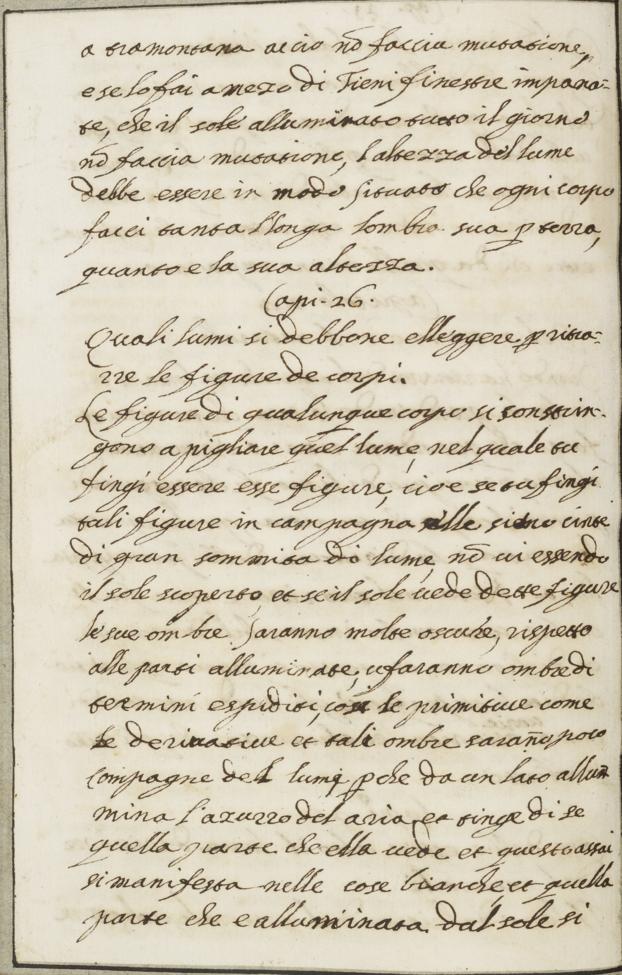 a tramontana accio nō faccia mutatione,
e se lo fai a mezo di Tieni finestre impana-
te, che il sole alluminato tutto il giorno
nō faccia mutatione, l'altezza del lume
debbe essere in modo situato che ogni corpo
facci tanta llonga lombra sua p terra,
quanto e la sua altezza.
Capi. 26.
Quali lumi si debbone elleggere p ritra-
rre le figure de corpi.
Le figure di qualunque corpo si constrin-
gono a pigliare quel lume, nel quale tu
fingi essere esse figure, cioe se tu fingi
tali figure in campagna elle sieno cinte
di gran sommita di lume, nō vi essendo
il sole scoperto, et se il sole vede dette figure
le sue ombre saranno molte oscure, rispetto
alle parti alluminate, e faranno ombre di
termini espiditi, cosi le primitive come
le derivative et tali ombre sarañopoco
compagne del lume pche da un lato allum̄
mina l'azurro del aria et tinge di se
quella parte che ella vede et questo assai
si manifesta nelle cose bianche, et quella
parte che e alluminata dal sole si